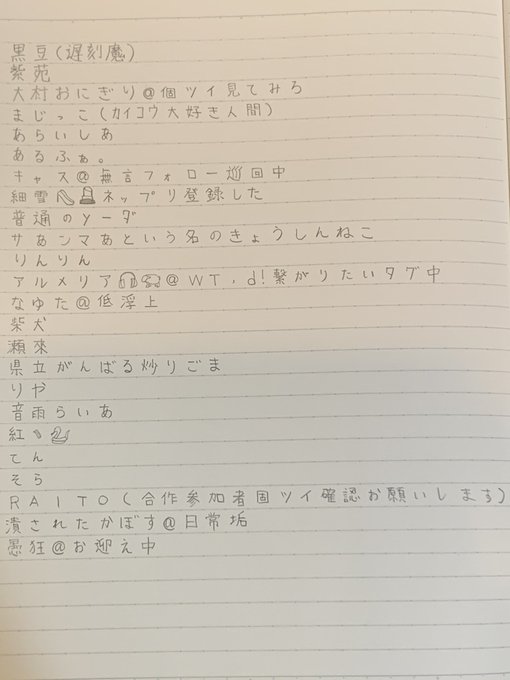 黒豆(遅刻魔)
紫苑
大村おにぎり@個ツイ見てみろ
まじっこ(カイコウ大好き人間)
あらいしあ
あるふぁ。
キャス@無言フォロー巡回中
細雪ネップリ登録した
普通のソーダ
サあンマあという名のきょうしんねこ
りんりん
アルメリア🎧@WT,d!繋がりたいタグ中
なゆた@低浮上
柴犬
瀬來
県立がんばる炒りごま
りや
音雨らいあ
紅
てん
そら
RAITO(合作参加者固ツイ確認お願いします)
潰されたかぼす@日常垢
愚狂@お迎え中